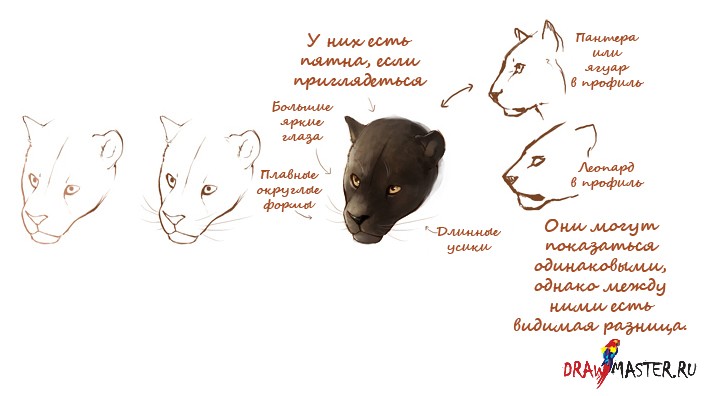 У них есть
пятна, если
приглядеться
Большие
яркие
глаза
Плавные
округлые
формы
Длинные
усики
Пантера
или
ягуар
в профиль
Леопард
в профиль
Они могут
показаться
одинаковыми,
однако между
ними есть
видимая разница.
DRAWMASTER.RU